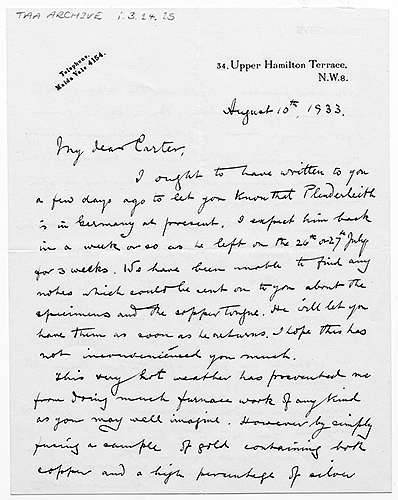 TAA ARCHIVE i.3.24.25
Telephone.
Maida Vale 4154.
34, Upper Hamilton Terrace.
N.W.8.
August 10th, 1933.
My dear Carter,
I ought to have written to you
a few days ago to let you know that Plenderleith
is in Germany at present. I expect him back
in a week or so as he left on the 26th or 27th July
for 3 weeks. We have been unable to find any
notes which could be sent on to you about the
specimens and the copper tongue. He will let you
have them as soon as he returns. I hope this has
not inconvenienced you much.
This very hot weather has prevented me
from doing much furnace work of any kind
as you may well imagine. However by simply
fusing a sample of gold containing both
copper and a high percentage of silver